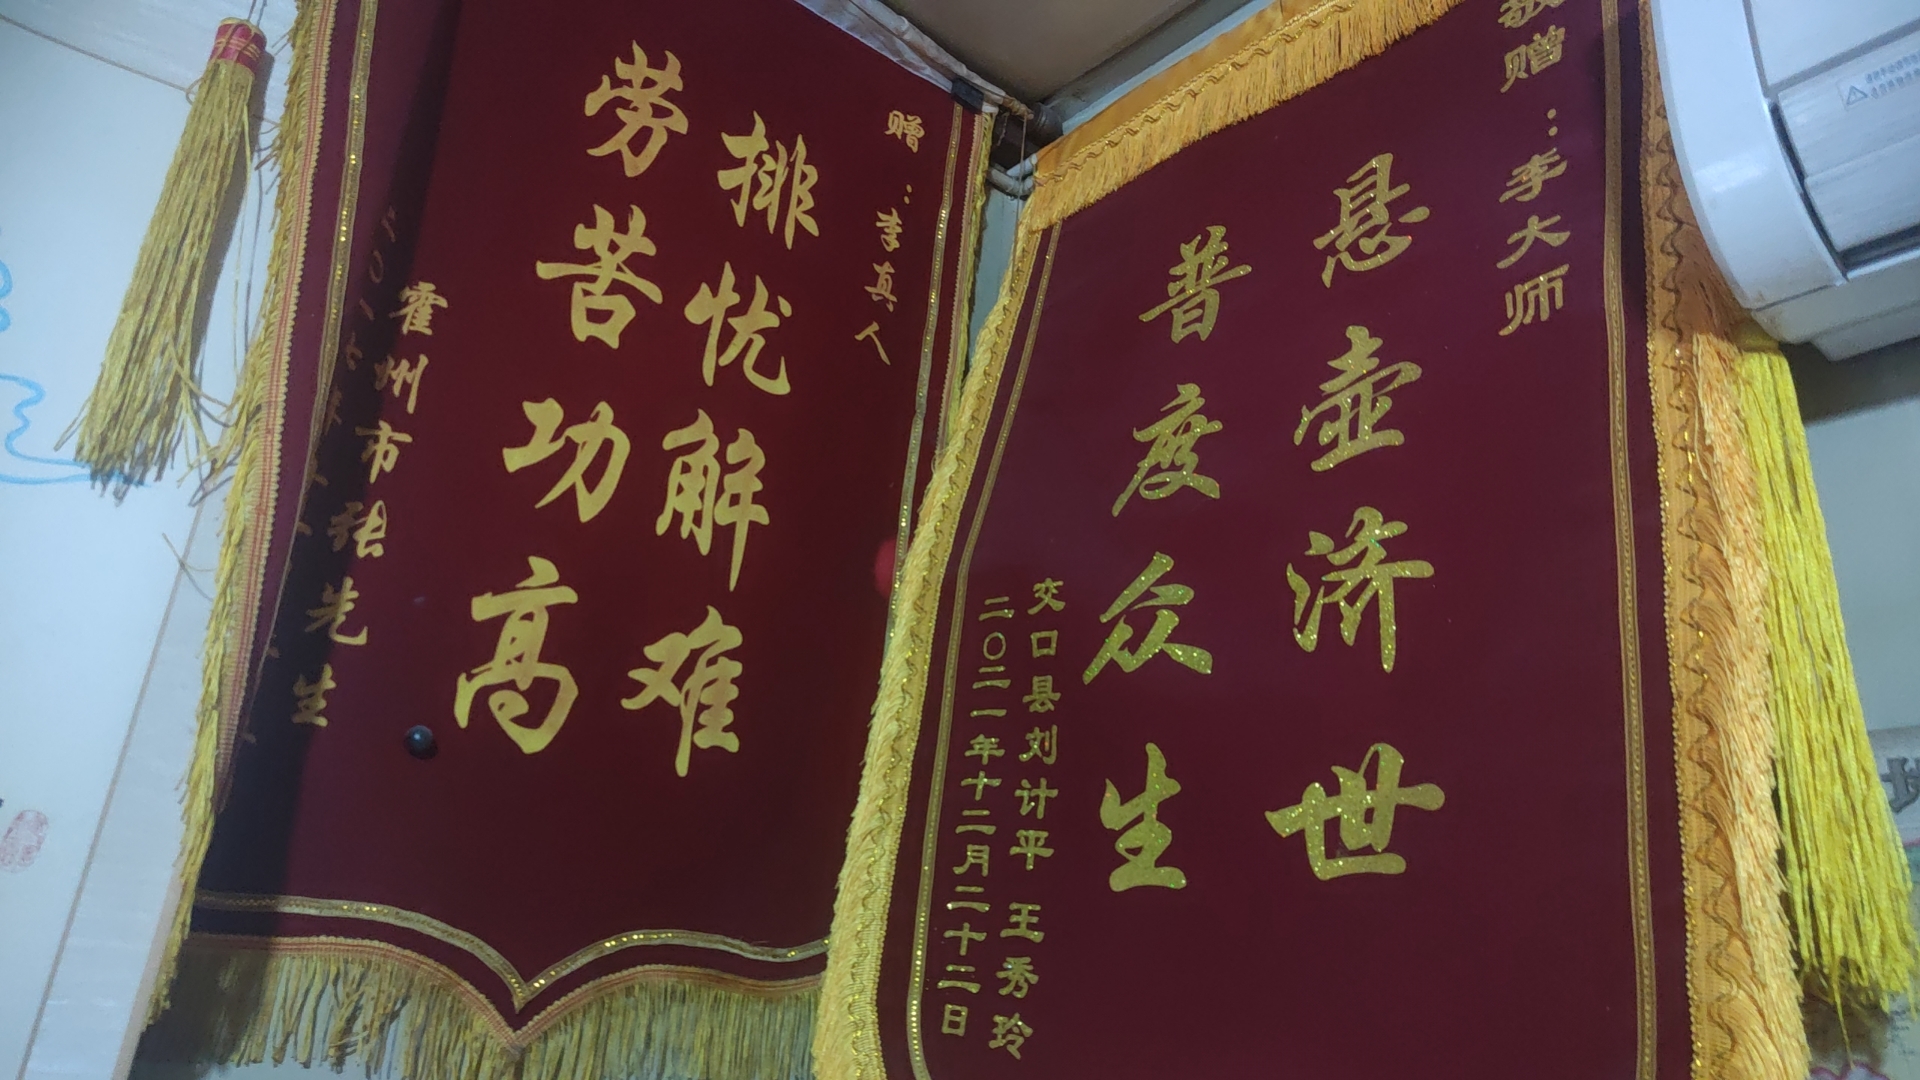 敬赠：李大师
悬壶济世
普度众生
交口县刘计平 王秀玲
二〇二一年十二月二十二日
赠：李真人
排忧解难
劳苦功高
霍州市张先生